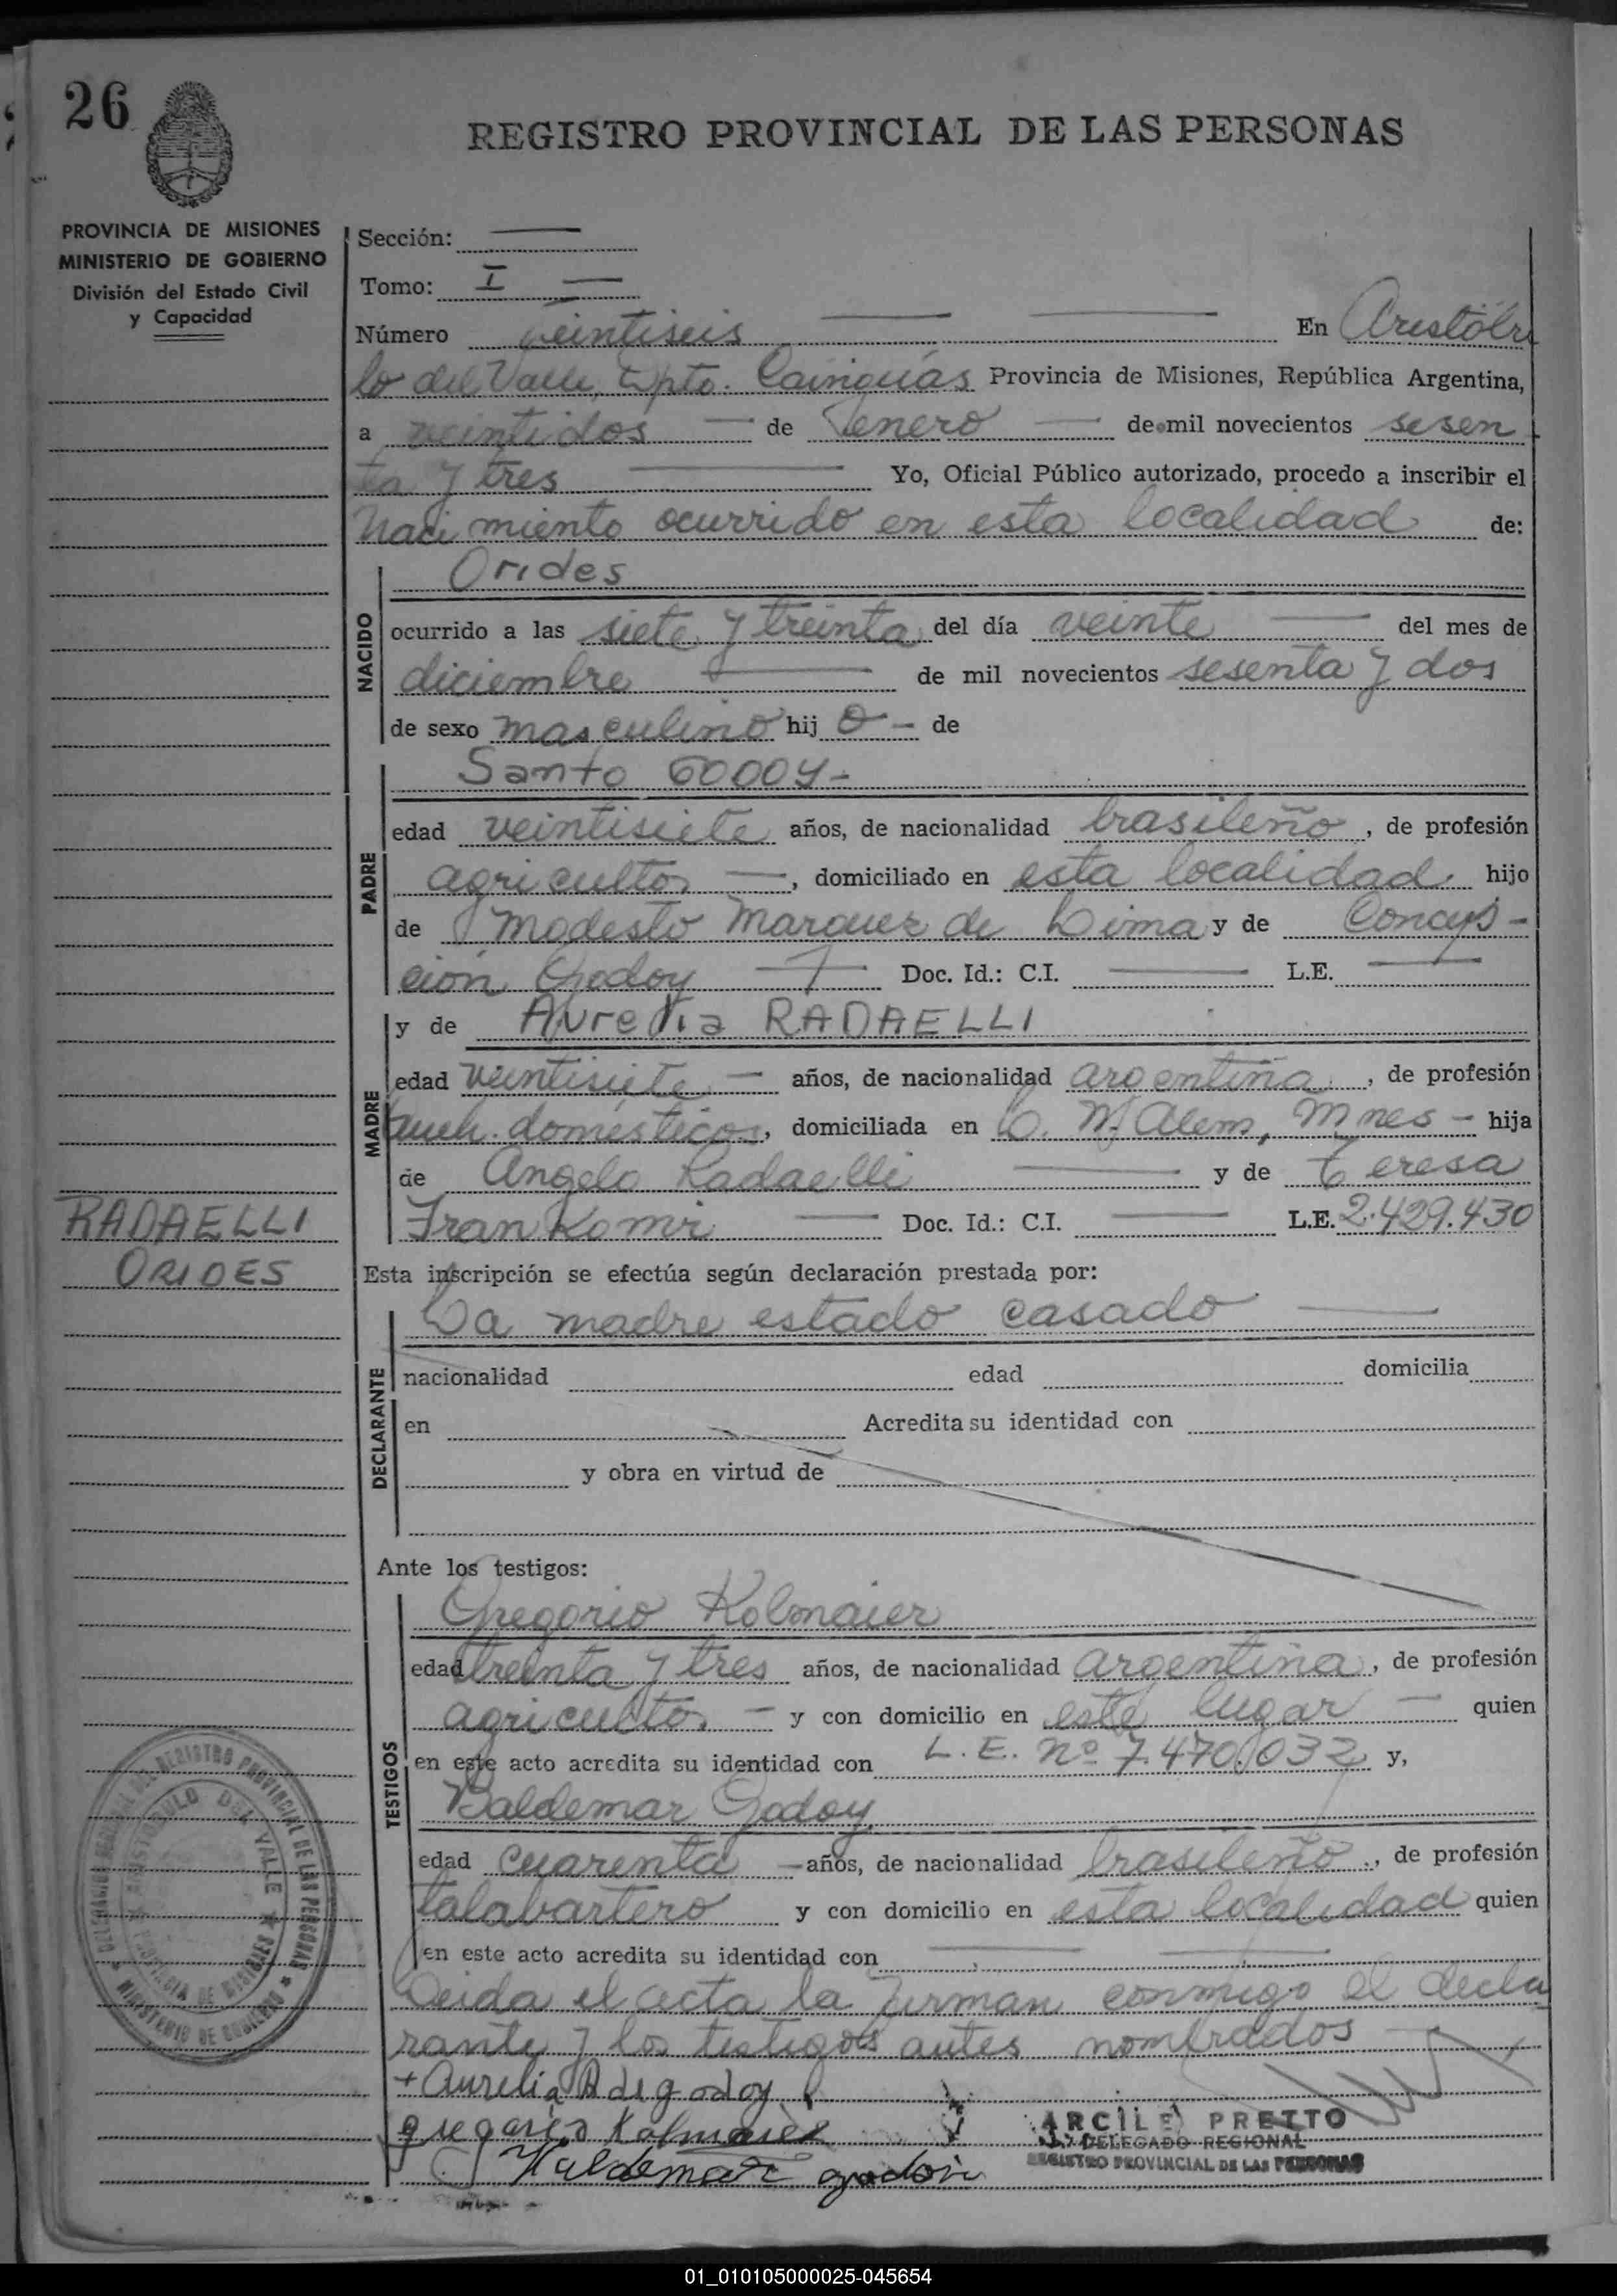 26
REGISTRO PROVINCIAL DE LAS PERSONAS
PROVINCIA DE MISIONES
MINISTERIO DE GOBIERNO
División del Estado Civil
y Capacidad
Sección:
Tomo: I
Número veintiseis En Aristóbu
lo del Valle, Dpto. Cainguás Provincia de Misiones, República Argentina,
a veintidos de Enero de mil novecientos sesen
ta y tres Yo, Oficial Público autorizado, procedo a inscribir el
Nacimiento ocurrido en esta localidad de:
NACIDO
Orides
ocurrido a las siete y treinta del día veinte del mes de
diciembre de mil novecientos sesenta y dos
de sexo masculino hij o - de
PADRE
Santo GODOY-
edad veintisiete años, de nacionalidad brasileño, de profesión
agricultor, domiciliado en esta localidad hijo
de Modesto Marques de Lima y de Concep-
ción Godoy Doc. Id.: C.I. L.E.
MADRE
y de Aurelia RADAELLI
edad veintisiete - años, de nacionalidad argentina, de profesión
queh. domésticos, domiciliada en L. N. Alem, Mnes - hija
de Angelo Radaelli y de Teresa
Frankomir Doc. Id.: C.I. L.E. 2.429.430
RADAELLI
ORIDES
Esta inscripción se efectúa según declaración prestada por:
DECLARANTE
La madre estado casado
nacionalidad edad domicilia
en Acredita su identidad con
y obra en virtud de
Ante los testigos:
TESTIGOS
Gregorio Kolmaier
edad treinta y tres años, de nacionalidad argentina, de profesión
agricultor - y con domicilio en este lugar - quien
en este acto acredita su identidad con L. E. Nº 7.470.032 y,
Valdemar Godoy,
edad cuarenta - años, de nacionalidad brasileño, de profesión
talabartero y con domicilio en esta localidad quien
en este acto acredita su identidad con
Leida el acta la firman conmigo el decla
rante y los testigos antes nombrados
+ Aurelia R de godoy
gregorio Kolmaier
Valdemar godoi
ARCILE PRETTO
DELEGADO REGIONAL
REGISTRO PROVINCIAL DE LAS PERSONAS
DEL REGISTRO PROVINCIAL DE LAS PERSONAS
ARISTOBULO DEL VALLE
PROVINCIA DE MISIONES
MINISTERIO DE GOBIERNO
01_010105000025-045654